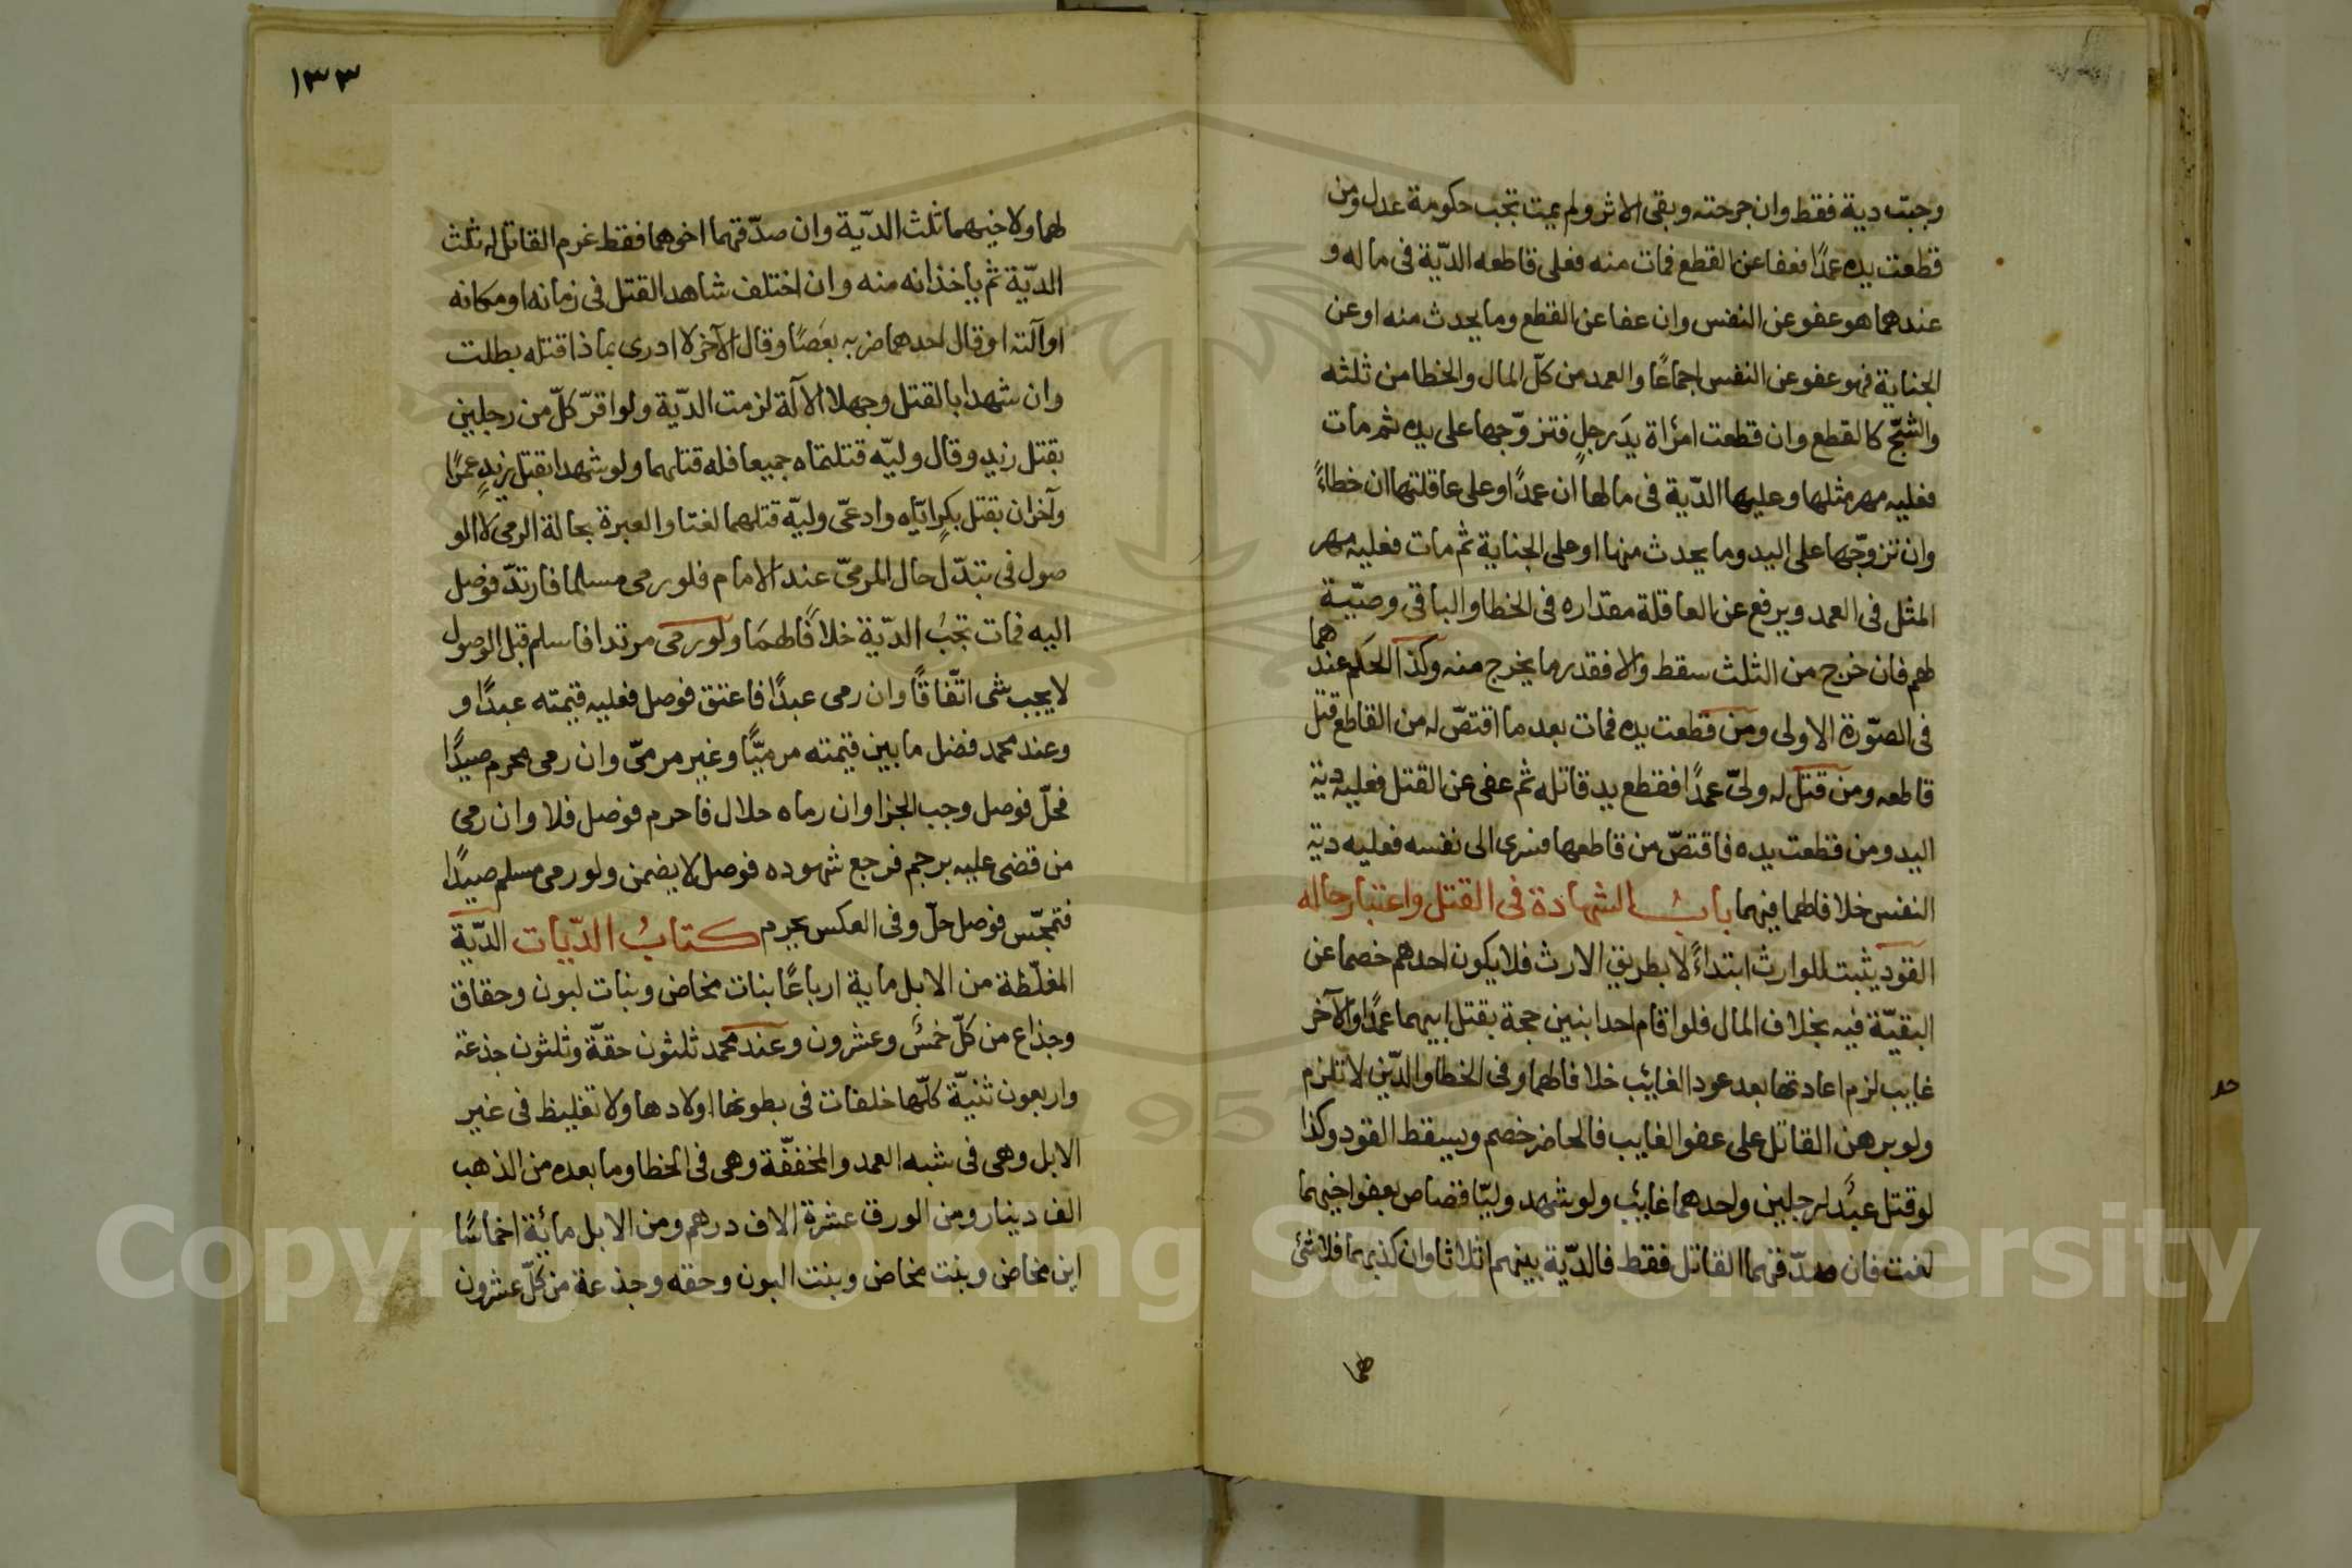 وجبت دية فقط وان جرحته وبقى الاثر ولم يمت تجب حكومة عدل ومن
قطعت يده عمدًا فعفا عن القطع فمات منه فعلى قاطعه الديّة فى ماله و
عندهما هو عفو عن النفس وان عفا عن القطع وما يحدث منه او عن
الجناية فهو عفو عن النفس اجماعًا والعمد من كلّ المال والخطا من ثلثه
والشجّ كالقطع وان قطعت امرأة يدَ رجلٍ فتزوّجها على يده ثم مات
فعليه مهر مثلها وعليها الديّة فى مالها ان عمدًا وعلى عاقلتها ان خطاءً
وان تزوجّها على اليد وما يحدث منها او على الجناية ثم مات فعليه مهر
المثل فى العمد ويرفع عن العاقلة مقداره فى الخطا والباقى وصيّة
لهم فان خرج من الثلث سقط والا فقدر ما يخرج منه وكذا الحكم عندهما
فى الصّورة الاولى ومن قطعت يده فمات بعد ما اقتصّ له من القاطع قتل
قاطعه ومن قتل له ولىّ عمدًا فقطع يد قاتله ثم عفى عن القتل فعليه دية
اليد ومن قطعت يده فاقتصّ من قاطعها فسرى الى نفسه فعليه دية
النفس خلافا لهما فيهما بابُ الشهادة فى القتل واعتبار حاله
القود يثبت للوارث ابتداءً لا بطريق الارث فلا يكون احدهم خصما عن
البقيّة فيه بخلاف المال فلو اقام احد ابنين حجة بقتل ابيهما عمدًا والآخر
غايب لزم اعادتها بعد عود الغائب خلافا لهما وفى الخطا والدّين لا تلزم
ولو برهن القاتل على عفو الغايب فالحاضر خصم ويسقط القود وكذا
لو قتل عبدٌ لرجلين واحدهما غائب ولو شهد وليّا قصاص بعفو اخيهما
لغت فان صدّقهما القاتل فقط فالديّة بينهم اثلاثا وان كذبهما فلا شئ
لهما
١٣٣
لهما ولاخيهما ثلث الديّة وان صدّقهما اخوهما فقط غرم القاتل له ثلث
الديّة ثم ياخذانه منه وان اختلف شاهدا القتل فى زمانه او مكانه
او آلته او قال احدهما ضربه بعَصًا وقال الآخر لا ادرى بماذا قتله بطلت
وان شهدا بالقتل وجهلا الآلة لزمت الديّة ولو اقرّ كلّ من رجلين
بقتل زيد وقال وليّه قتلتماه جميعا فله قتلهما ولو شهدا بقتل زيدٍ عمرًا
وآخران بقتل بكرٍ ايّاه وادعىّ وليّه قتلهما لغتا والعبرة بحالة الرمى لا الو
صول فى تبدّل حال المرمىّ عند الامام فلو رمى مسلما فارتدّ فوصل
اليه فمات تجبُ الديّة خلافًا لهمَا ولو رمى مرتدا فاسلم قبل الوصول
لا يجب شى اتّفاقًا وان رمى عبدًا فاعتق فوصل فعليه قيمته عبدًا و
وعند محمد فضل ما بين قيمته مرميًّا وغير مرمىّ وان رمى محرم صيدًا
فحلّ فوصل وجب الجزا وان رماه حلال فاحرم فوصل فلا وان رمى
من قضى عليه برجم فرجع شهوده فوصل لا يضمن ولو رمى مسلم صيدًا
فتمجّس فوصل حلّ وفى العكس يحرم كتابُ الدّيات الديّة
المغلّظة من الابل ماية ارباعًا بنات مخاض وبنات لبون وحقاق
وجذاع من كلّ خمسٌ وعشرون وعند محمد ثلثون حقّة وثلثون جذعة
واربعون ثنيّة كلّها خلفات فى بطونها اولادها ولا تغليظ فى غير
الابل وهى فى شبه العمد والمخففّة وهى فى الخطا وما بعده من الذهب
الف دينار ومن الورق عشرة الاف درهم ومن الابل مائة اخماسًا
ابن مخاض وبنت مخاض وبنت البون وحقه وجذعة من كلّ عشرون
Copyright © King Saud University